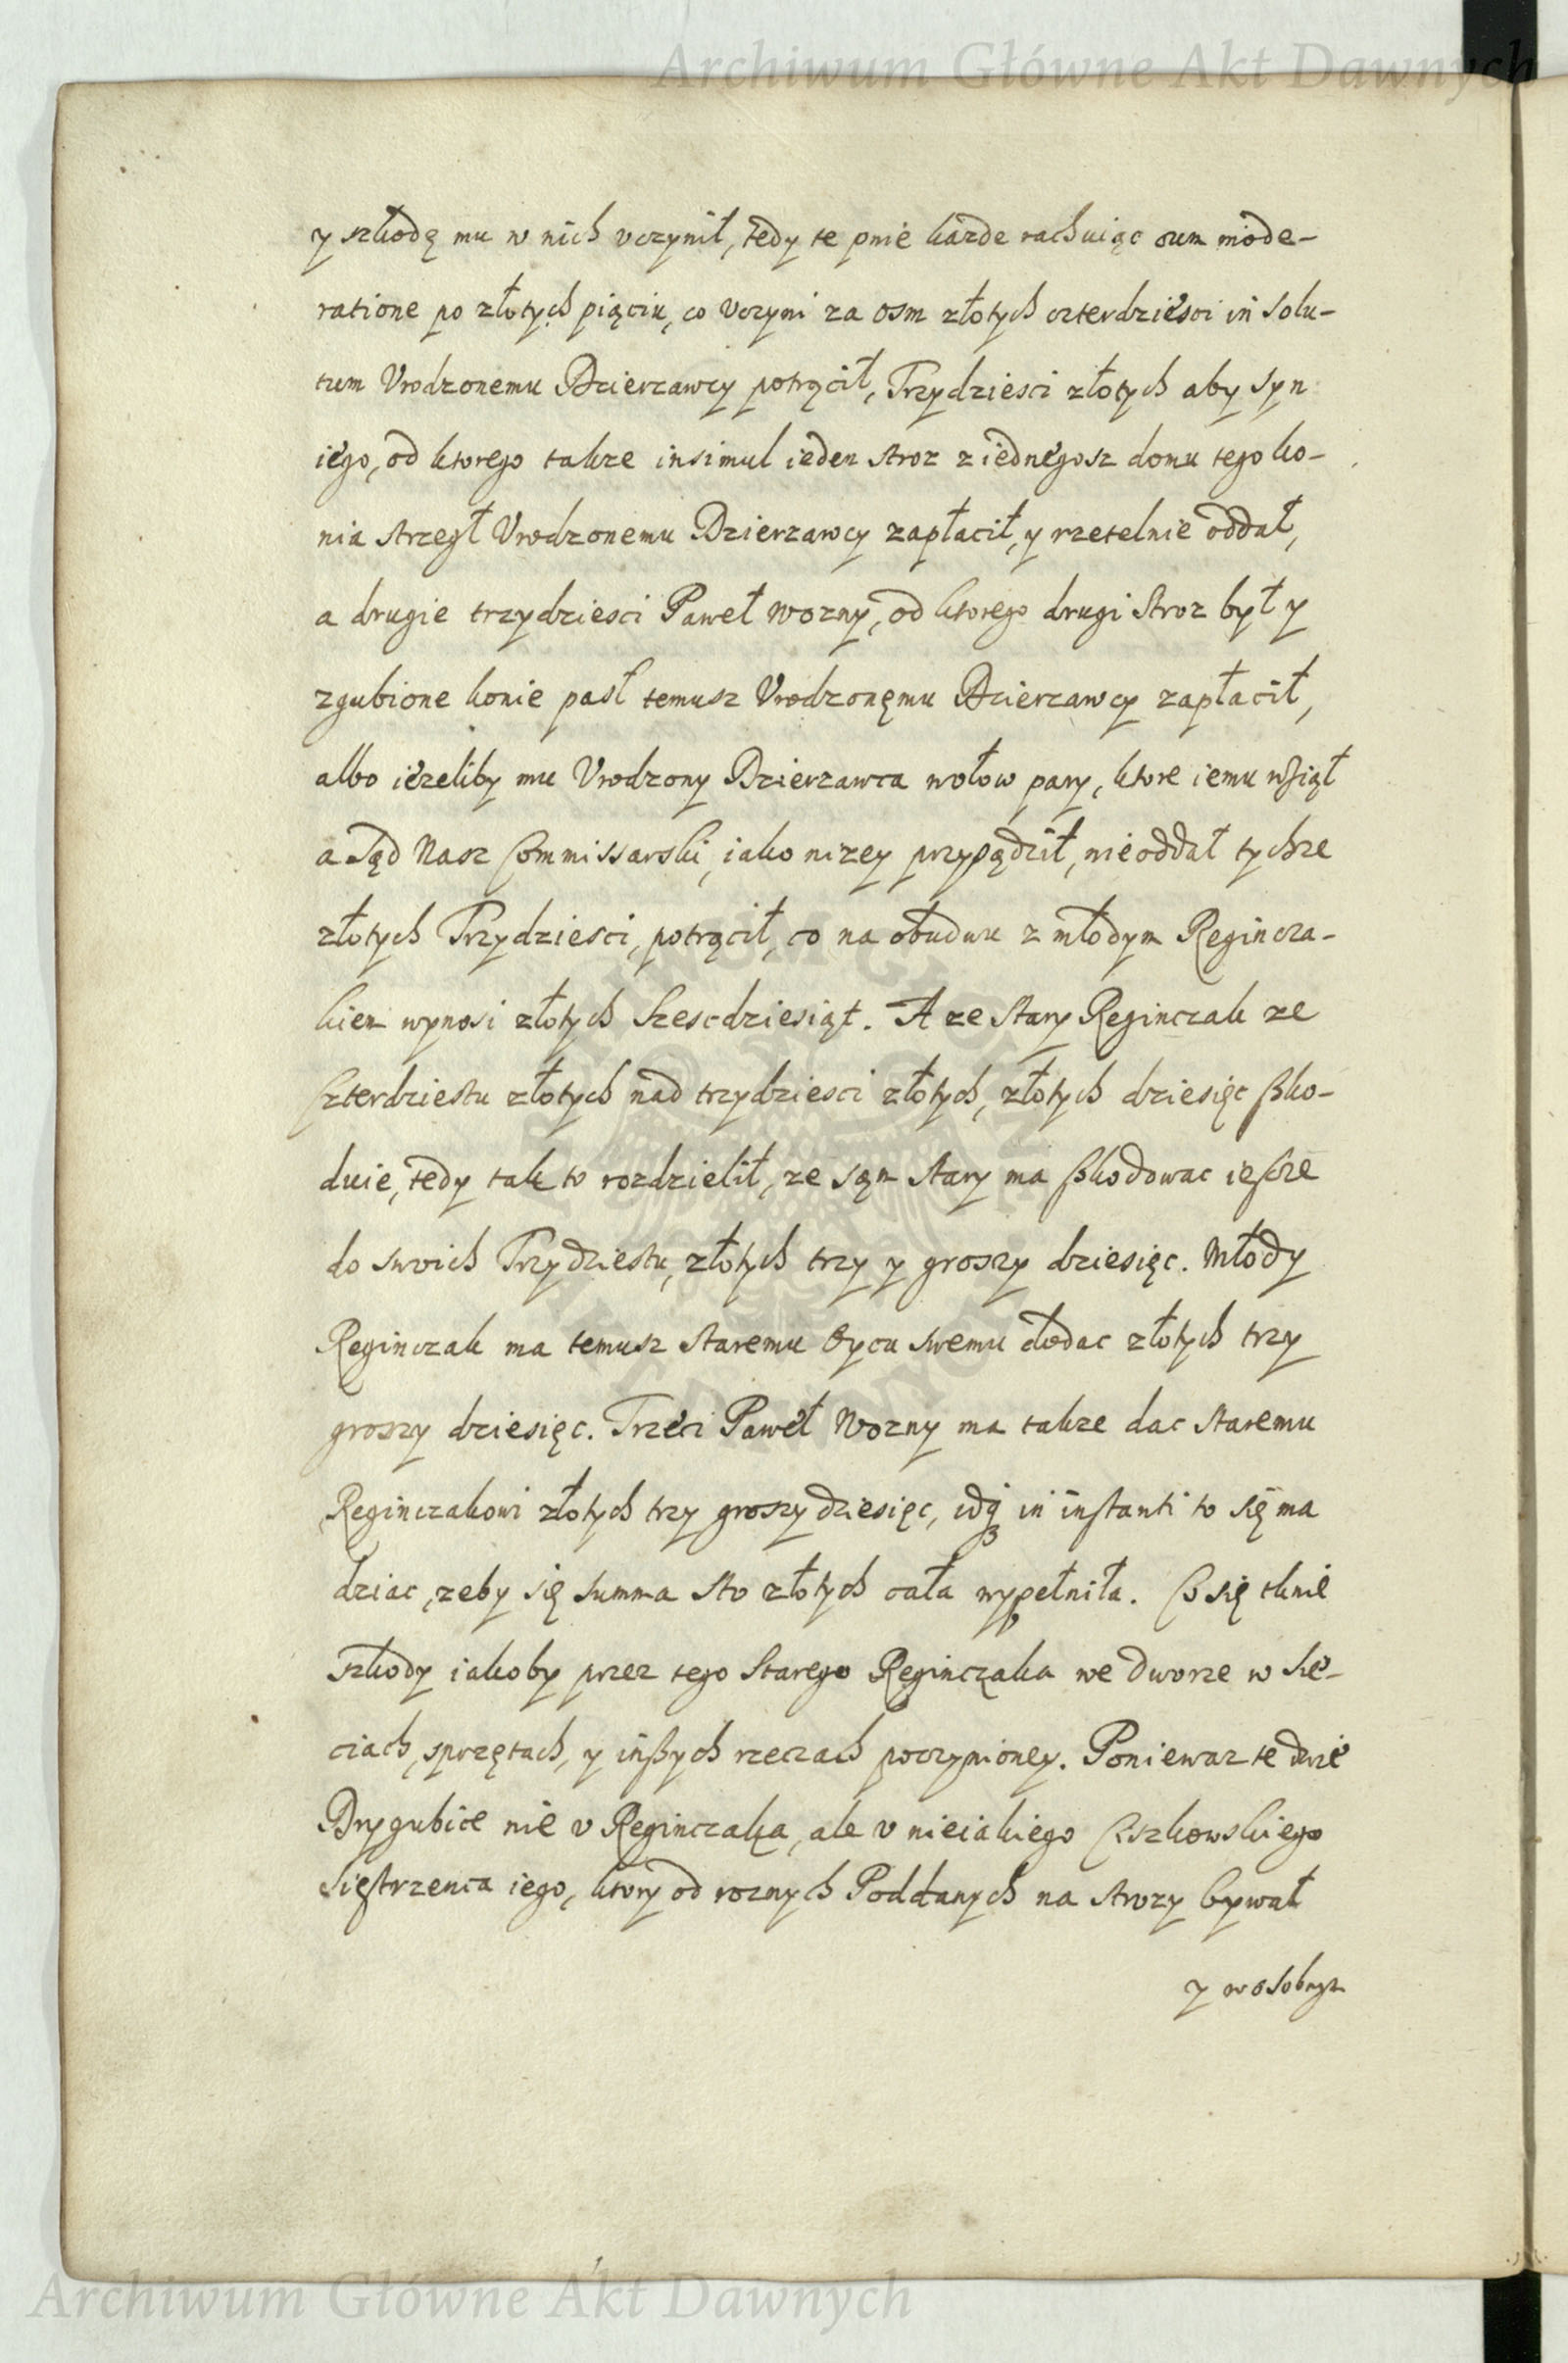 Archiwum Główne Akt Dawnych
y szkodę mu w nich vczynił, tedy te pnie każde rachuiąc cum mode-
ratione po złotych piąciu, co vczyni za osm złotych czterdziesci in solu-
tum Vrodzonemu Dzierzawcy potrącił, Trzydziesci złotych aby syn
iego, od ktorego takze insimul ieden stroz z iednegosz domu tego ko-
nia strzegł Vrodzonemu Dzierzawcy zapłacił, y rzetelnie oddał,
a drugie trzydziesci Paweł Wozny, od ktorego drugi stroz był y
zgubione konie pasł temusz Vrodzonęmu Dzierzawcy zapłacił,
albo iezeliby mu Vrodzony Dzierzawca wołow pary, ktore iemu wziął
a Sąd Nasz Commissarski, iako nizey przysądził, nie oddał tychze
złotych Trzydziesci, potrącił, co na obudwu z młodym Regincza-
kiem wynosi złotych Szescdziesiąt. A ze Stary Reginczak ze
Czterdziestu złotych nad trzydziesci złotych, złotych dziesięc szko-
duie, tedy tak to rozdzielił, ze sąm stary ma szkodowac ieszcze
do swoich Trzydziestu, złotych trzy y groszy dziesięc. Młody
Reginczak ma temusz staremu Oycu swemu dodac złotych trzy
groszy dziesięc. Trzeci Paweł Wozny ma takze dac staremu
Reginczakowi złotych trzy groszy dziesięc, idq in instanti to się ma
dziac, zeby się summa sto złotych cała wypełniła. Co się tknie
szkody iakoby przez tego Starego Reginczaka we dworze w sie-
ciach, sprzętach, y inszych rzeczach poczynioney. Poniewaz te dwie
Drygubice nie v Reginczaka, ale v nieiakiego Czszkowskiego
Sięstrzenca iego, ktory od roznych Poddanych na strozy bywał
y wosobnym
Archiwum Główne Akt Dawnych